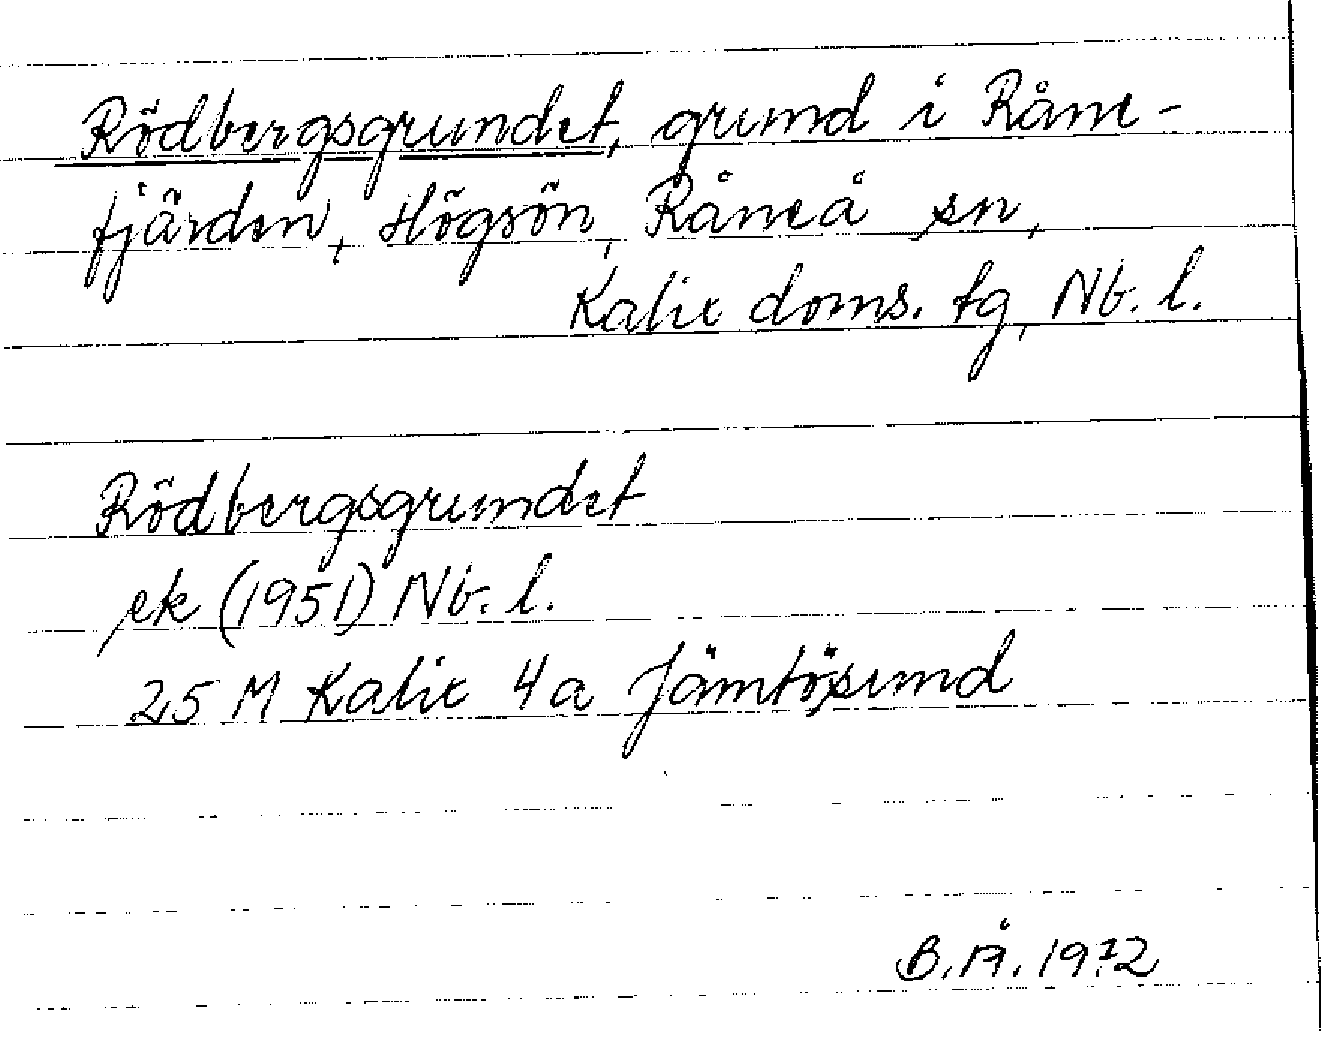 Rödbergsgrundet, grund i Råne-
fjärden, Högsön, Råneå sn,
Kalix doms. tg, Nb. l.
Rödbergsgrundet
ek (1951) Nb. l.
25 M Kalix 4a Jämtösund
B.Å. 1972